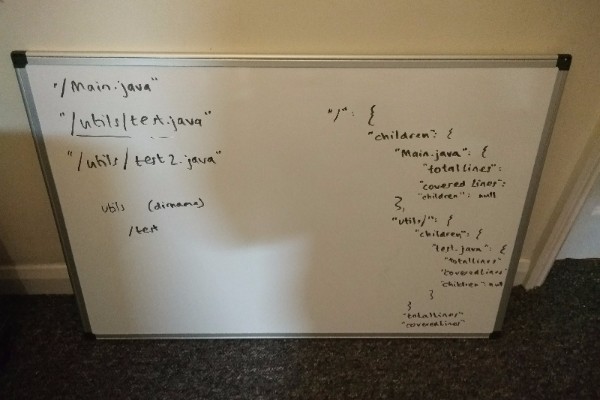 "/Main.java"
"/utils/test.java"
"/utils/test2.java"
utils (dirname)
/test
"/": {
"children": {
"Main.java": {
"totalLines":
"covered Lines":
"children": null
},
"utils/": {
"children": {
"test.java": {
"totalLines"
"coveredLines"
"children": null
}
}
"totalLines"
"coveredLines"